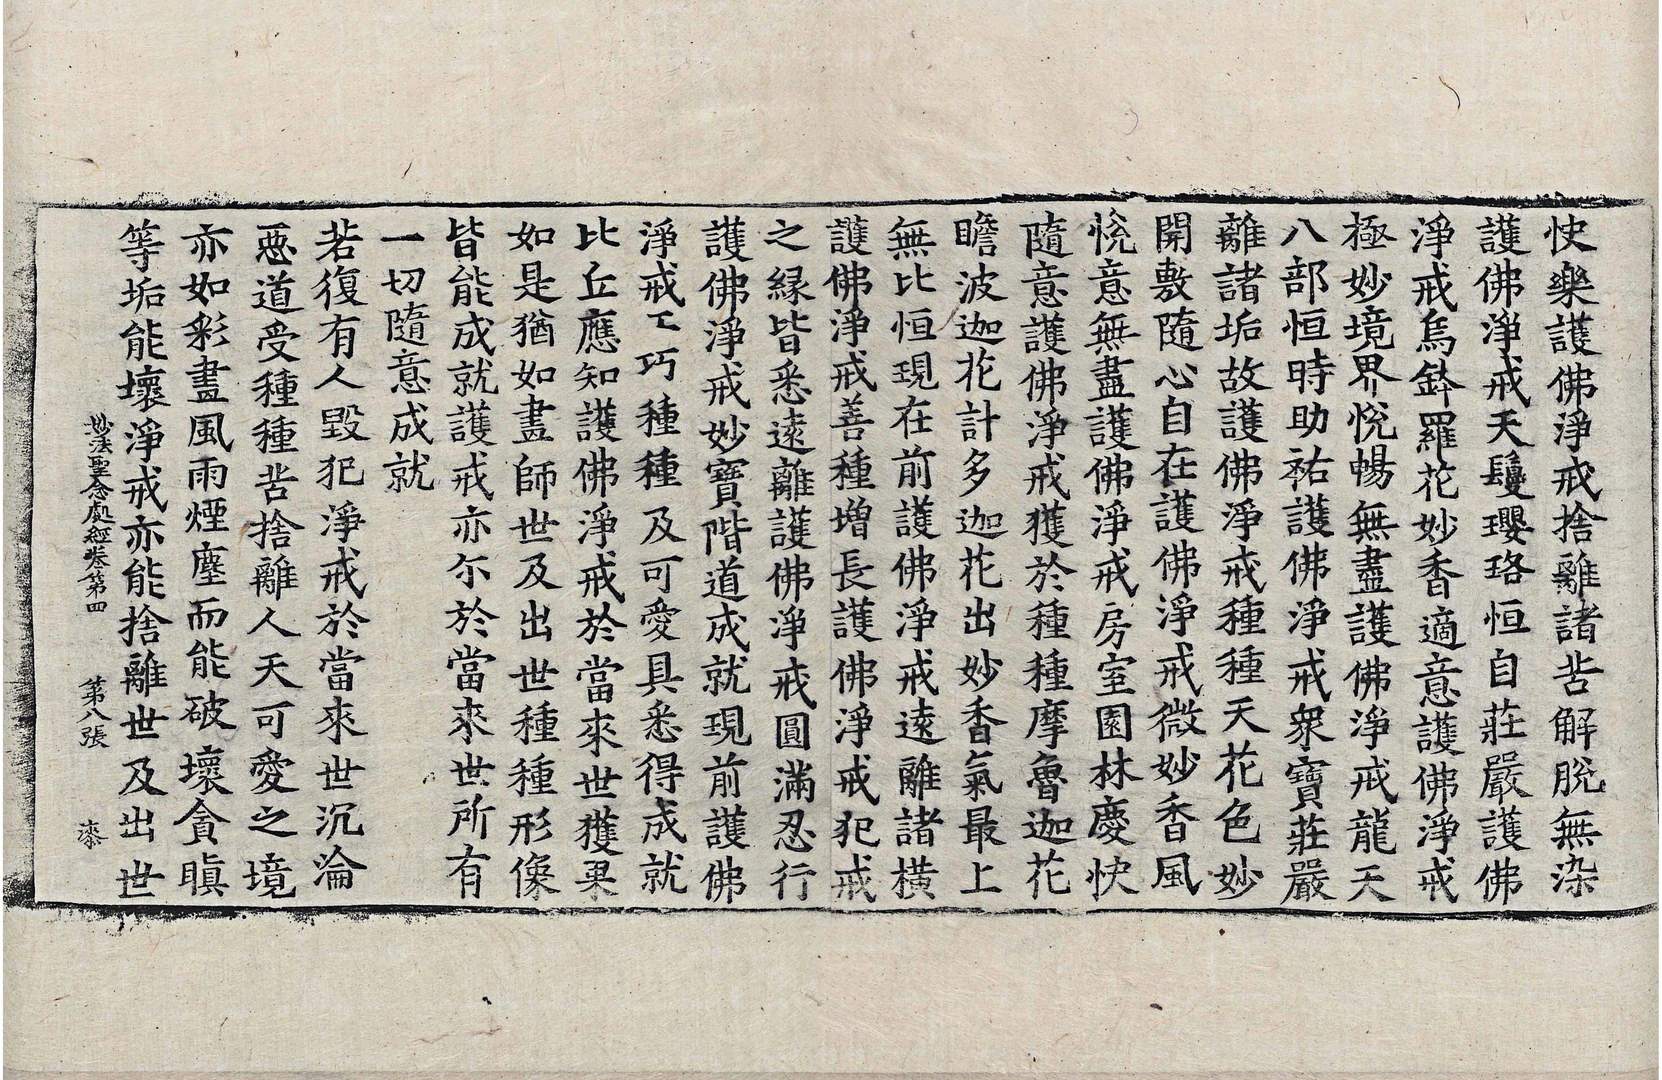 快樂護佛淨戒捨離諸苦解脫無染
護佛淨戒天鬘瓔珞恒自莊嚴護佛
淨戒烏鉢羅花妙香適意護佛淨戒
極妙境界悅暢無盡護佛淨戒龍天
八部恒時助祐護佛淨戒衆寶莊嚴
離諸垢故護佛淨戒種種天花色妙
開敷隨心自在護佛淨戒微妙香風
悅意無盡護佛淨戒房室園林慶快
隨意護佛淨戒獲於種種摩魯迦花
瞻波迦花計多迦花出妙香氣最上
無比恒現在前護佛淨戒遠離諸橫
護佛淨戒善種增長護佛淨戒犯戒
之緣皆悉遠離護佛淨戒圓滿忍行
護佛淨戒妙寶階道成就現前護佛
淨戒工巧種種及可愛具悉得成就
比丘應知護佛淨戒於當來世獲果
如是猶如畫師世及出世種種形像
皆能成就護戒亦尒於當來世所有
一切隨意成就
若復有人毀犯淨戒於當來世沉淪
惡道受種種苦捨離人天可愛之境
亦如彩畫風雨煙塵而能破壞貪瞋
等垢能壞淨戒亦能捨離世及出世
妙法聖念處經卷第四 第八張 漆